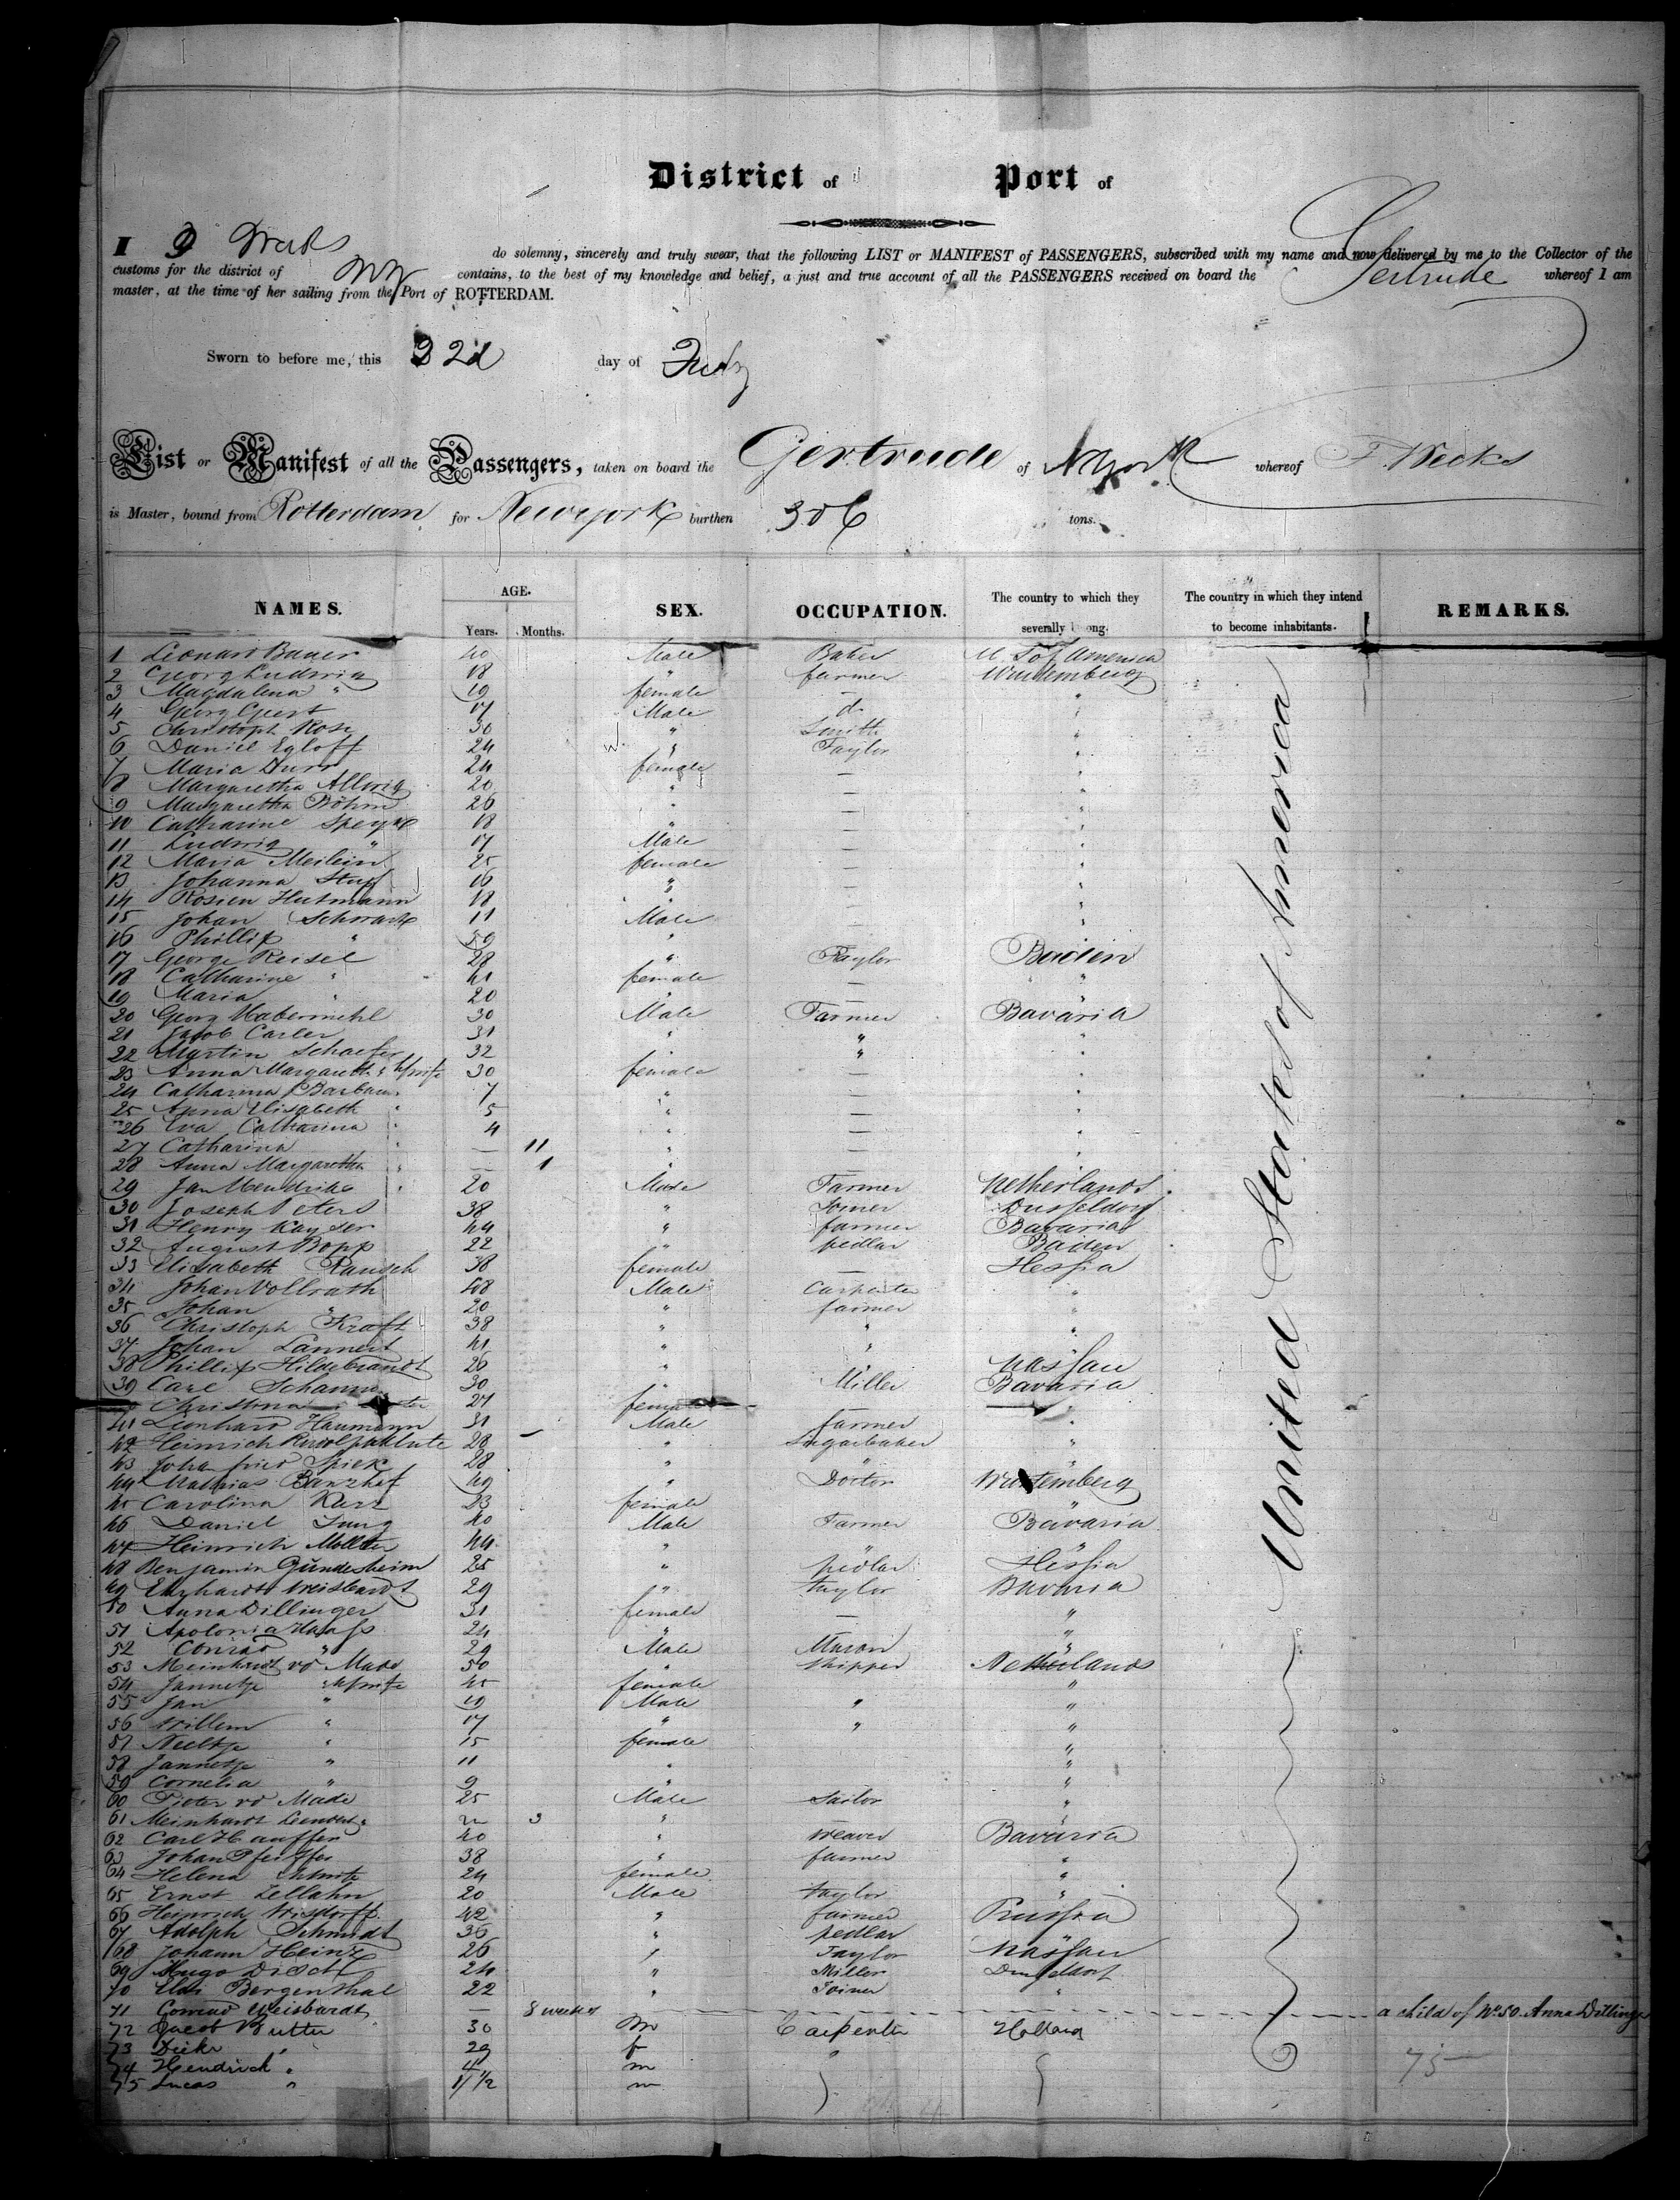 District of Port of
I do solemny, sincerely and truly swear, that the following LIST or MANIFEST of PASSENGERS, subscribed with my name and now delivered by me to the Collector of the
customs for the district of NY contains, to the best of my knowledge and belief, a just and true account of all the PASSENGERS received on board the Gertrude whereof I am
master, at the time of her sailing from the Port of ROTTERDAM.
Sworn to before me, this 22d day of July
List or Manifest of all the Passengers, taken on board the Gertrude of NYork whereof F. Weeks
is Master, bound from Rotterdam for Newyork burthen 306 tons.
NAMES. AGE. Years. Months. SEX. OCCUPATION. The country to which they severally belong. The country in which they intend to become inhabitants. REMARKS.
United States of America
1 Leonard Bauer 40 Male Baker U S of America
2 Georg Ludwig 18 " farmer Wurtemberg
3 Magdalena " 19 female — "
4 Georg 17 Male d. "
5 Christoph Rose 30 " Smith "
6 Daniel Egloff 24 " Taylor "
7 Maria Durr 24 female — "
8 Margaretha Allwig 20 " — "
9 Margaretha Böhm 26 " — "
10 Catharine 18 " — "
11 Ludwig " 17 Male — "
12 Maria Meilein 25 female — "
13 Johanna 16 " — "
14 Rosien Hutmann 18 " — "
15 Johan Schwartz 11 Male — "
16 Phillip " 59 " — "
17 George Reisel 28 " Taylor Baden
18 Catharine " 41 female — "
19 Maria " 20 " — "
20 Georg Habermehl 30 Male Farmer Bavaria
21 Jacob Carler 31 " " "
22 Martin Schaefer 32 " " "
23 Anna Margareth " h/wife 30 female — "
24 Catharina Barbara 7 " — "
25 Anna Elisabeth " 5 " — "
26 Eva Catharina " 4 " — "
27 Catharina " — 11 " — "
28 Anna Margaretha " — 1 " — "
29 Jan Hendriks 20 Male Farmer Netherlands
30 Joseph Peters 38 " Joiner Dusseldorf
31 Henry Kayser 44 " farmer Bavaria
32 August Bopp 22 " pedlar Baden
33 Elisabeth Rausch 38 female — Hessia
34 Johan Vollrath 48 Male Carpenter "
35 Johan " 20 " farmer "
36 Christoph Kraft 38 " " "
37 Johan Lannert 41 " " "
38 Phillip Hildebrandt 26 " " Nassau
39 Carl Schamm 30 " Miller Bavaria
Christina 27 female — "
41 Leonhard Haumann 31 Male farmer "
42 Heinrich 28 " Sugarbaker "
43 Johan Spiek 28 " " "
44 Mathias Banzhaf 49 " Doctor Wurtemberg
45 Carolina Kurz 23 female "
46 Daniel Jung 40 Male Farmer Bavaria
47 Heinrich Moller 44 " " "
48 Benjamin Gundesheim 25 " pedlar Hessia
49 Ehrhardt Weisbardt 29 " taylor Bavaria
50 Anna Dillinger 31 female — "
51 Apolonia Haafs 24 " "
52 Conrad " 29 Male Mason "
53 Meinhardt vd Made 50 " Skipper Netherlands
54 Jannetje " h/wife 45 female "
55 Jan " 19 Male " "
56 Willem " 17 " " "
57 Neeltje " 15 female "
58 Jannetje " 11 " "
59 Cornelia " 9 " "
60 Pieter vd Made 25 Male Sailor "
61 Meinhardt 3 " "
62 Carl Hauffer 40 " weaver Bavaria
63 Johan Pfeiffer 38 " farmer "
64 Helena h/wife 24 female "
65 Ernst Zellahn 20 Male taylor "
66 Heinrich Wisdorff 42 " farmer Prussia
67 Adolph Schmidt 36 " pedlar "
68 Johann Heinz 26 " Taylor Nassau
69 Hugo Disch 24 " Miller Dusseldorf
70 Bergenthal 22 " Joiner "
71 Conrad Weisbardt — 8 weeks a child of No. 50 Anna Dillinger
72 Jacob Butter 30 m Carpenter Holland
73 " 29 f "
74 Hendrick " 4 m
75 Lucas " 1 1/2 m
75